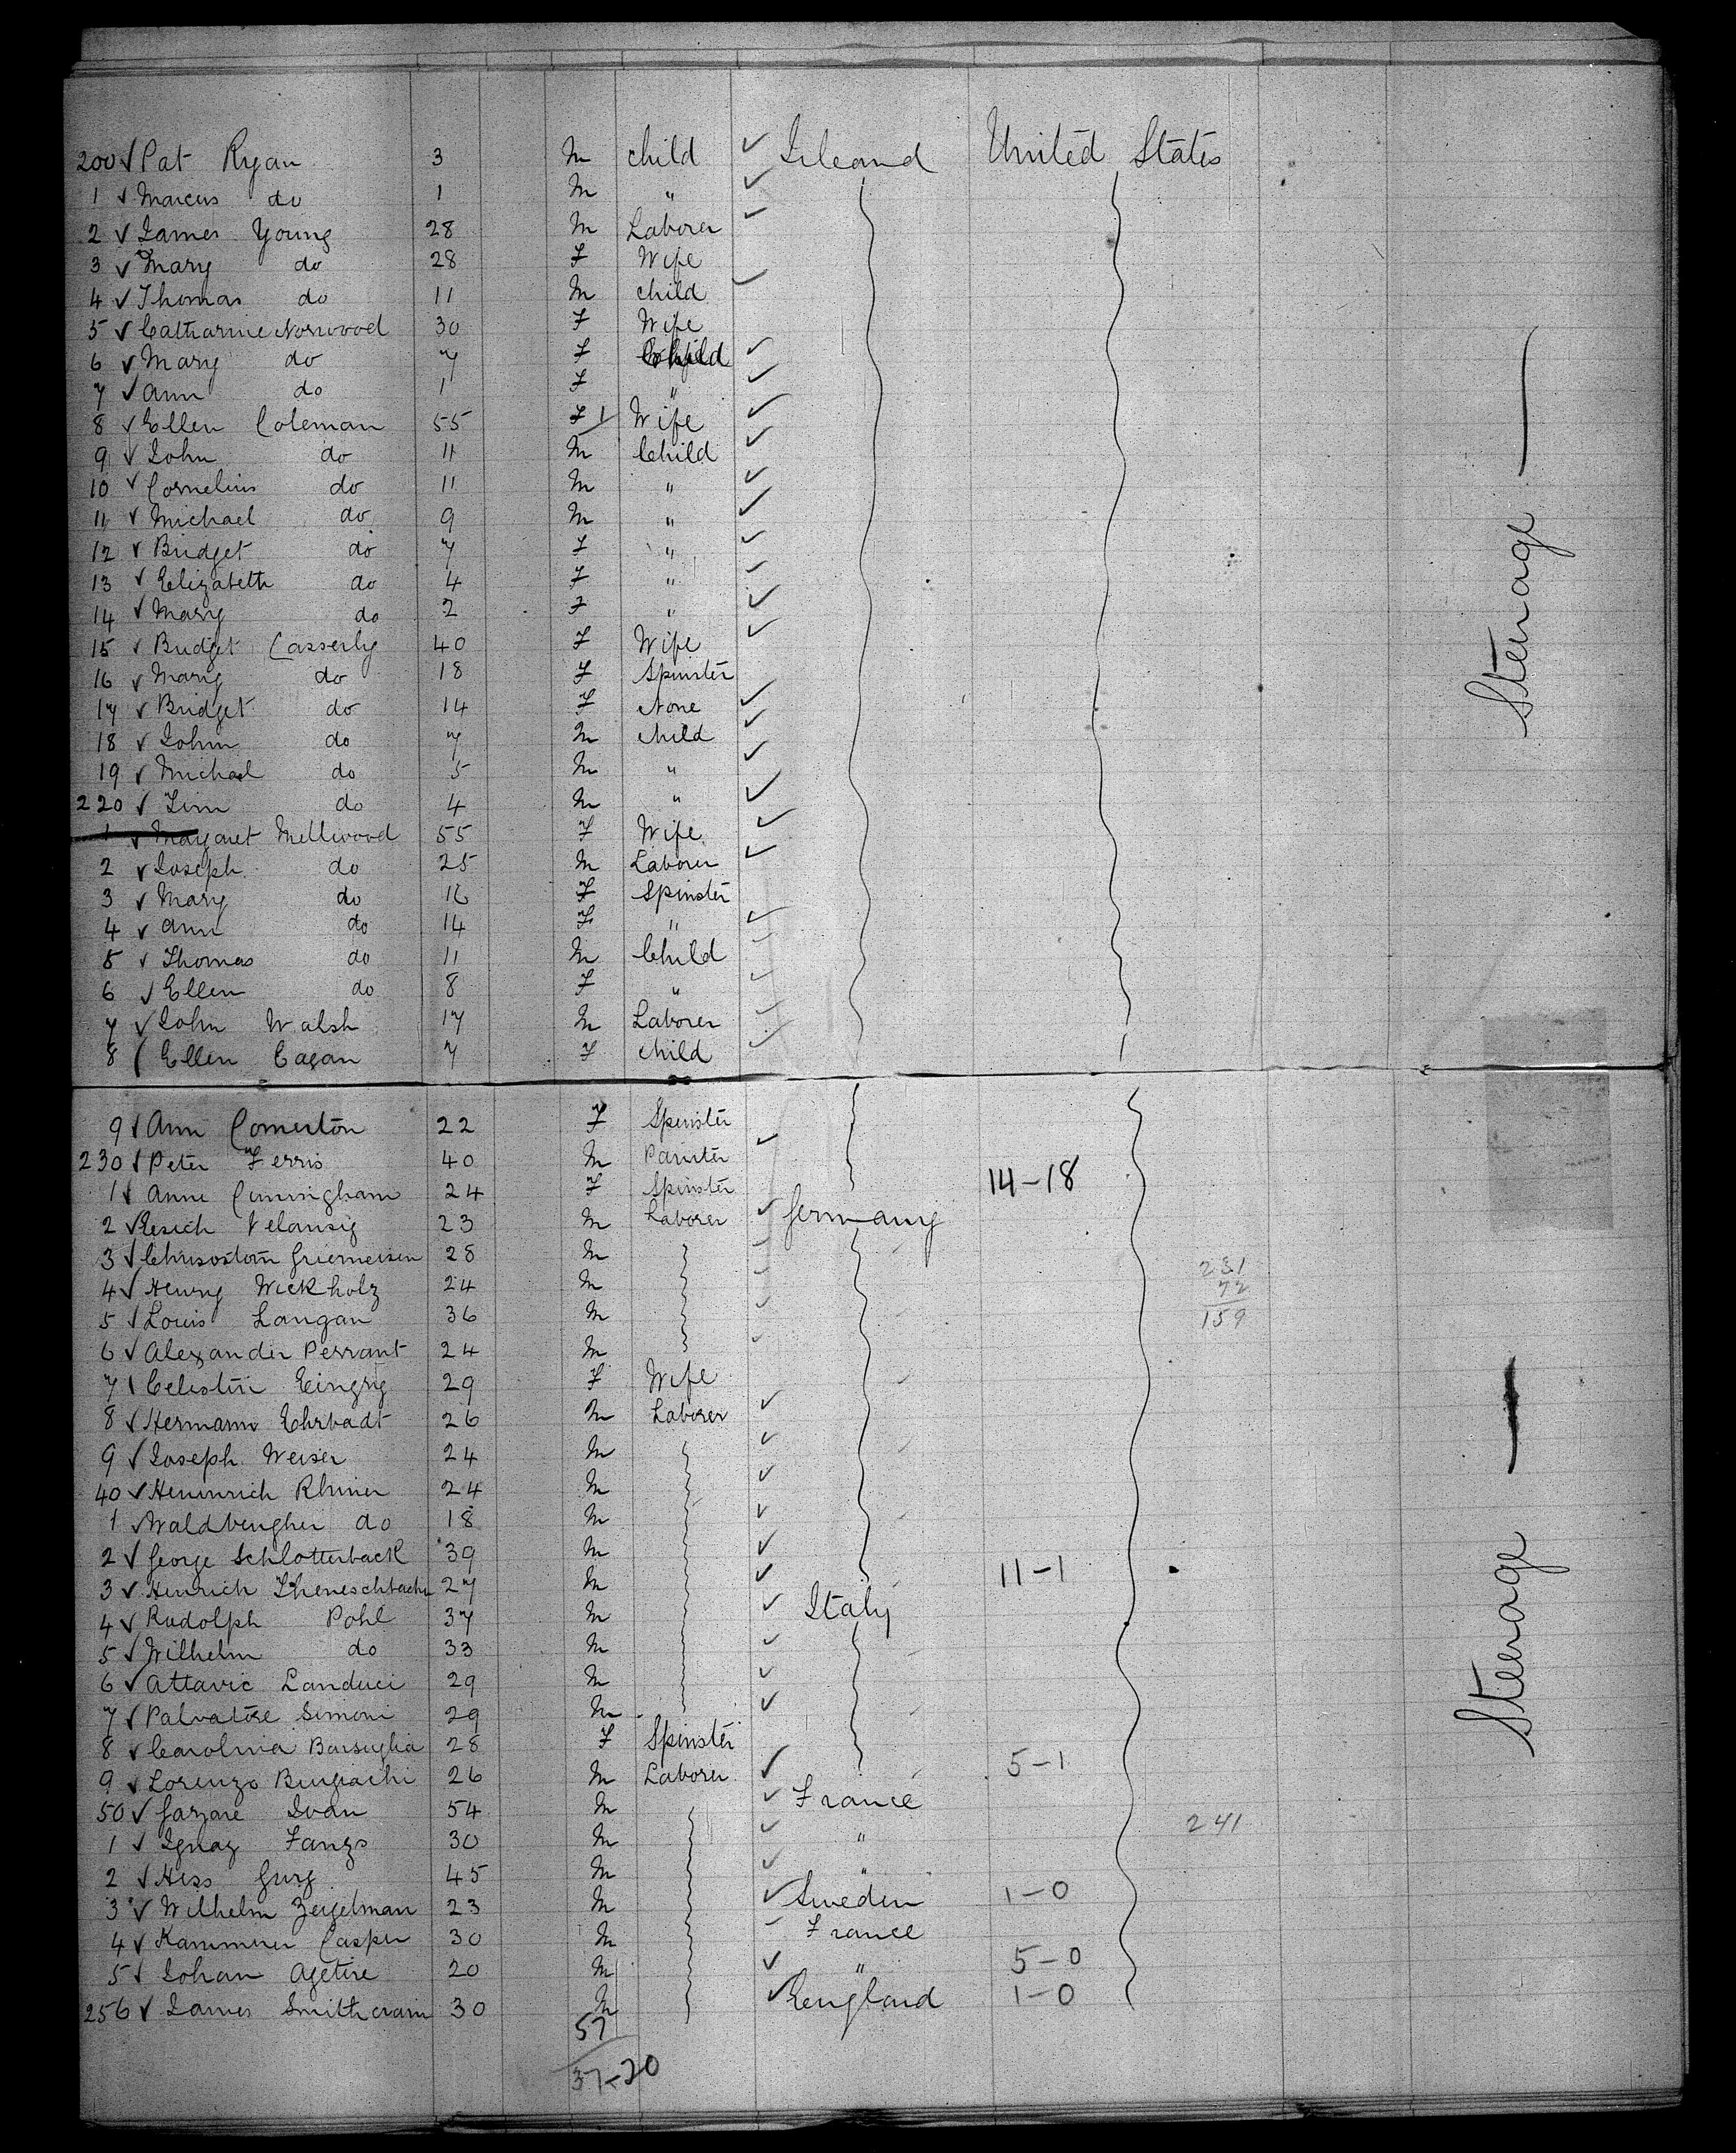 200 Pat Ryan 3 M child Ireland United States
1 Marcus do 1 M "
2 James Young 28 M Laborer
3 Mary do 28 F Wife
4 Thomas do 11 M child
5 Catharine Norwood 30 F Wife
6 Mary do 7 F Child
7 Ann do 1 F "
8 Ellen Coleman 55 F 1 Wife
9 John do 11 M Child
10 Cornelius do 11 M "
11 Michael do 9 M "
12 Bridget do 7 F "
13 Elizabeth do 4 F "
14 Mary do 2 F "
15 Bridget Casserly 40 F Wife
16 Mary do 18 F Spinster
17 Bridget do 14 F None
18 John do 7 M child
19 Michael do 5 M "
220 Jim do 4 M "
1 Margaret Mellwood 55 F Wife
2 Joseph do 25 M Laborer
3 Mary do 16 F Spinster
4 Ann do 14 F "
5 Thomas do 11 M Child
6 Ellen do 8 F "
7 John Walsh 17 M Laborer
8 Ellen Eagan 7 F child
Steerage
9 Ann Comerton 22 F Spinster
230 Peter Ferris 40 M Painter
1 Anne Cunningham 24 F Spinster 14-18
2 23 M Laborer Germany
3 Chrisostom 28 M
231
4 Henry Wickholz 24 M
72
5 Louis Langan 36 M
159
6 Alexander Perrant 24 M
7 Celestin 29 F Wife
8 Hermann Ehrbadt 26 M Laborer
9 Joseph Weiser 24 M
40 Heninrich Rhiner 24 M
1 do 18 M
2 George Schlotterback 39 M
3 Heinrich 27 M 11-1
4 Rudolph Pohl 37 M Italy
5 Wilhelm do 33 M
6 Attavic Landuci 29 M
7 Palvatore Simoni 29 M
8 Carolina Barsuglia 28 F Spinster
9 Lorenzo 26 M Laborer 5-1
50 Ivan 54 M France
1 Ignaz Fanzo 30 M " 241
2 Hess 45 M "
3 Wilhelm Zeigelman 23 M Sweden 1-0
4 Kammerer Casper 30 M France
5 Johan Agetire 20 M " 5-0
256 James Smithcrain 30 M England 1-0
Steerage
57
37-20